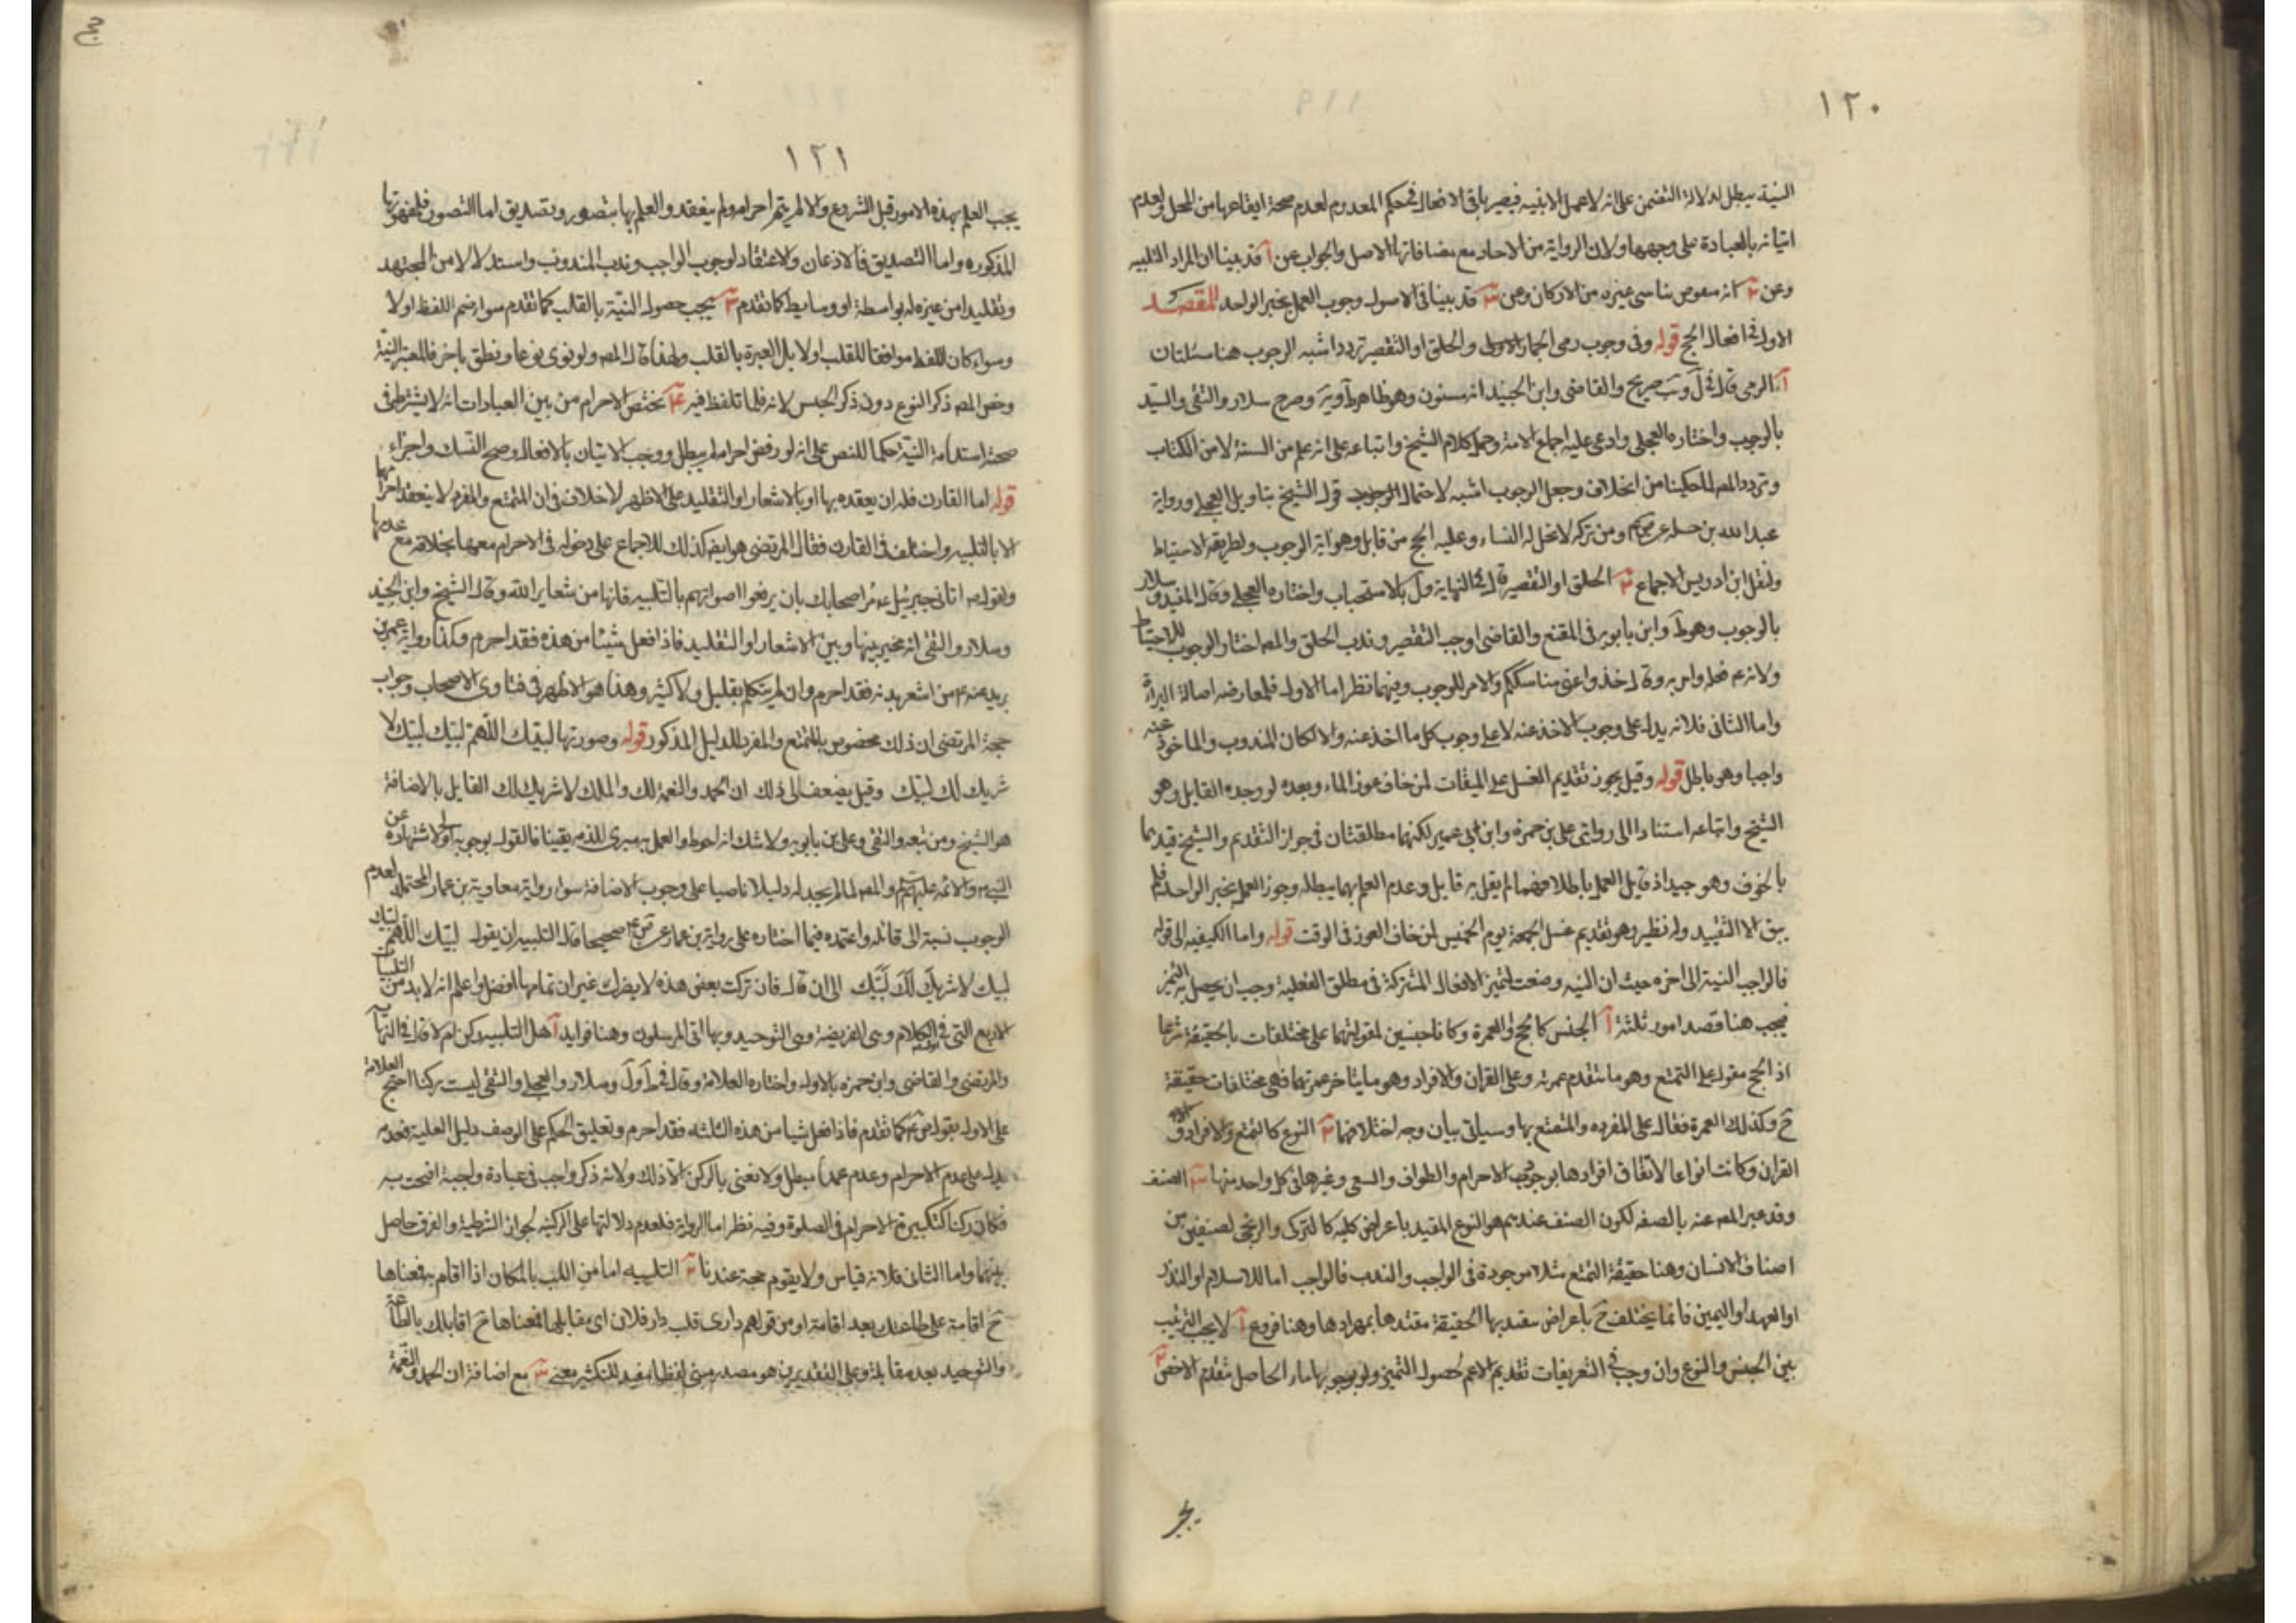 ١٢٠
النية يبطل لدلالة التضمن على انه لا عمل الا بنية فيصير باقى الافعال فى حكم المعدوم لعدم صحة ايقاعها من المحل ولعدم
اتيانه بالعبادة على وجهها ولان الرواية من الاحاد مع منافاتها الاصل والجواب عن آ قد بينا ان المراد التلبيه
وعن ٢ انه بناسى غيره من الاركان وعن ٣ قد بينا فى الاصول وجوب العمل بخبر الواحد المقصد
الاول فى افعال الحج قوله وفى وجوب رمى الجمار والحلق او التقصير تردد اشبهه الوجوب هنا مسئلتان
آ الرمى قال فى صريح والقاضى وابن الجنيد انه مسنون وهو ظاهر وصرح سلار والتقى والسيد
بالوجوب واختاره العجلى وادعى عليه اجماع الامة وحمل كلام الشيخ واتباعه على انه علم من السنة لا من الكتاب
وتردد المصـ لما حكينا من الخلاف وجعل الوجوب اشبه لاحتمال قول الشيخ بتاويل العجلى ورواية
عبدالله بن ومن تركه لا تحل له النساء وعليه الحج من قابل وهو اية الوجوب ولطريقه الاحتياط
ولنقل ابن ادريس الاجماع ٢ الحلق او التقصير قال فى النهاية بالاستحباب واختاره العجلى وقال المفيد وسلار
بالوجوب وهو وابن بابويه فى المقنع والقاضى اوجب التقصير وندب الحلق والمصـ اختار الوجوب للاحتياط
ولانه ع فعله وامر به وقال خذوا عنى مناسككم والامر للوجوب وفيهما نظر اما الاول فلمعارضه اصالة البراة
واما الثانى فلانه يدل على وجوب الاخذ عنه لا على وجوب كل ما اخذ عنه والا لكان المندوب والماخوذ عنه
واجبا وهو باطل قوله وقيل يجوز تقديم الغسل على الميقات لمن خاف عوز الماء ويعيده لو وجده القايل وهو
الشيخ واتباعه استنادا الى روايتى على بن حمزه وابن ابى عمير لكنهما مطلقتان فى جواز التقديم والشيخ قيدهما
بالخوف وهو جيد اذ قايل العمل باطلاقهما لم يقل به قايل وعدم العلم بهما يبطله وجوز العمل بخبر الواحد فلم
يبق الا التقييد وله نظير وهو تقديم غسل الجمعة يوم الخميس لمن خاف العوز فى الوقت قوله واما الكيفيه الى قوله
فالواجب النية الى اخره حيث ان النيه وضعت لتميز الافعال المشتركة فى مطلق الفعلية وجب ان يحصل به التميز
فيجب هنا قصد امور ثلثة آ الجنس كالحج والعمرة وكانا جنسين لمقوليتهما على مختلفات بالحقيقة شرعا
اذ الحج مقول على التمتع وهو ما يتقدم عمرته وعلى القران والافراد وهو ما يتاخر عمرتهما فهى مختلفات حقيقة
ح وكذلك العمرة فقال على المفرده والمتمتع بها وسياتى بيان وجه اختلافهما ٢ النوع كالتمتع والافراد و
القران وكانت انواعا لاتفاق افرادها بوجوب الاحرام والطواف والسعى وغيرها فى كل واحد منها ٣ الصنف
وقد عبر المصـ عنه بالصفه لكون الصنف عندهم هو النوع المقيد باعراض كليه كالتركى والزنجى لصنفين من
اصناف الانسان وهنا حقيقة التمتع مثلا موجودة فى الواجب والندب فالواجب اما للاسلام او النذر
او العهد او اليمين فانما يختلف ح باعراض بها الحقيقة وهنا فروع آ لا يجب الترتيب
بين الجنس والنوع وان وجب فى التعريفات تقديم الاعم لحصول التميز الحاصل تقدم الاخص ٢
يجب
١٢١
يجب العلم بهذه الامور قبل الشروع والا لم يتم احرامه ولم ينعقد والعلم بها بتصور وتصديق اما التصور فلمفهوماتها
المذكوره واما التصديق فالاذعان والاعتقاد لوجوب الواجب وندب المندوب واستدلالا من المجتهد
وتقليدا من غيره له بواسطة او وسايط كما تقدم ٣ يجب حصول النية بالقلب كما تقدم سوا ضم اللفظ اولا
وسواء كان اللفظ موافقا للقلب اولا بل العبرة بالقلب ولهذا قال المصـ ولو نوى نوعا ونطق باخر فالمعتبر النية
وخص المصـ ذكر النوع دون ذكر الجنس لانه قلما تلفظ فيه ٤ يختص الاحرام من بين العبادات انه لا يشترط فى
صحة استدامة النية حكما للنص على انه لو رفض احرامه لم يبطل ووجب الاتيان بالافعال وصح النسك واجزاء
قوله اما القارن فله ان يعقده بها او بالاشعار او التقليد على الاظهر لا خلاف فى ان المتمتع والمفرد لا ينعقد احرامهما
الا بالتلبيه واختلف فى القارن فقال المرتضى هو ايضا كذلك للاجماع على دخوله فى الاحرام معها بخلافه مع عدمها
ولقوله ص اتانى جبرئيل ع مر اصحابك بان يرفعوا اصواتهم بالتلبيه فانها من شعاير الله وقال الشيخ وابن الجنيد
وسلار والتقى انه مخير بينها وبين الاشعار او التقليد فاذا فعل شيئا من هذه فقد احرم وكذا رواية عمر بن
يزيد عنه ع من اشعر بدنه فقد احرم وان لم يتكلم بقليل ولا كثير وهذا هو الاظهر فى فتاوى الاصحاب وجواب
حجة المرتضى ان ذلك مخصوص بالمتمتع والمفرد للدليل المذكور قوله وصورتها لبيك اللهم لبيك لبيك لا
شريك لك لبيك وقيل يضيف الى ذلك ان الحمد والنعمة لك والملك لا شريك لك القايل بالاضافة
هو الشيخ ومن تبعه والتقى وعلى بن بابويه ولا شك انه احوط والعمل به مبرى للذمه يقينا فالقول بوجوبه اولى لاشتهاره عن
النبى ص والائمه عليهم السلم والمصـ لما لم يجد له دليلا ناصا على وجوب الاضافة سوا رواية معاوية بن عمار المحتمله لعدم
الوجوب نسبة الى قائله واعتمده فيما اختاره على رواية بن عمار عن صحيحا قال التلبيه ان يقول لبيك اللهم لبيك
لبيك لا شريك لك لبيك الى ان قال فان تركت بعض هذه لا يضرك غير ان تمامها افضل واعلم انه لا بد من التلبيات
الاربع التى فى الكلام وهى الفريضة وهى التوحيد وبها اتى المرسلون وهنا فوايد آ هل التلبيه ركن ام لا قال فى النهاية
والمرتضى والقاضى وابن حمزه بالاول واختاره العلامة وقال فى وسلار والعجلى والتقى ليست بركن احتج العلامة
على الاول بقوله كما تقدم فاذا فعل شيا من هذه الثلثه فقد احرم وتعليق الحكم على الوصف دليل العلية فعدمه
يدل على عدم الاحرام وعدم عمدا مبطل ولا نعنى بالركن الا ذلك ولانه ذكر واجب فى عبادة واجبة افتتحت به
فكان ركنا كتكبيرة الاحرام فى الصلوة وفيه نظر اما الرواية فلعدم دلالتها على الركنيه لجواز الشرطية والفرق حاصل
بينهما واما الثانى فلانه قياس ولا يقوم حجة عندنا ٢ التلبيه اما من اللب بالمكان اذا اقام به فمعناها
ح اقامة على طاعتك بعد اقامة او من قولهم دارى تلب دار فلان اى مقابلها فمعناها ح اقابلك بالطاعة
والتوحيد بعد مقابلة وعلى التقديرين هو مصدر مثنى لفظا مفيد للتكثير معنى ٣ مع اضافة ان الحمد والنعمة